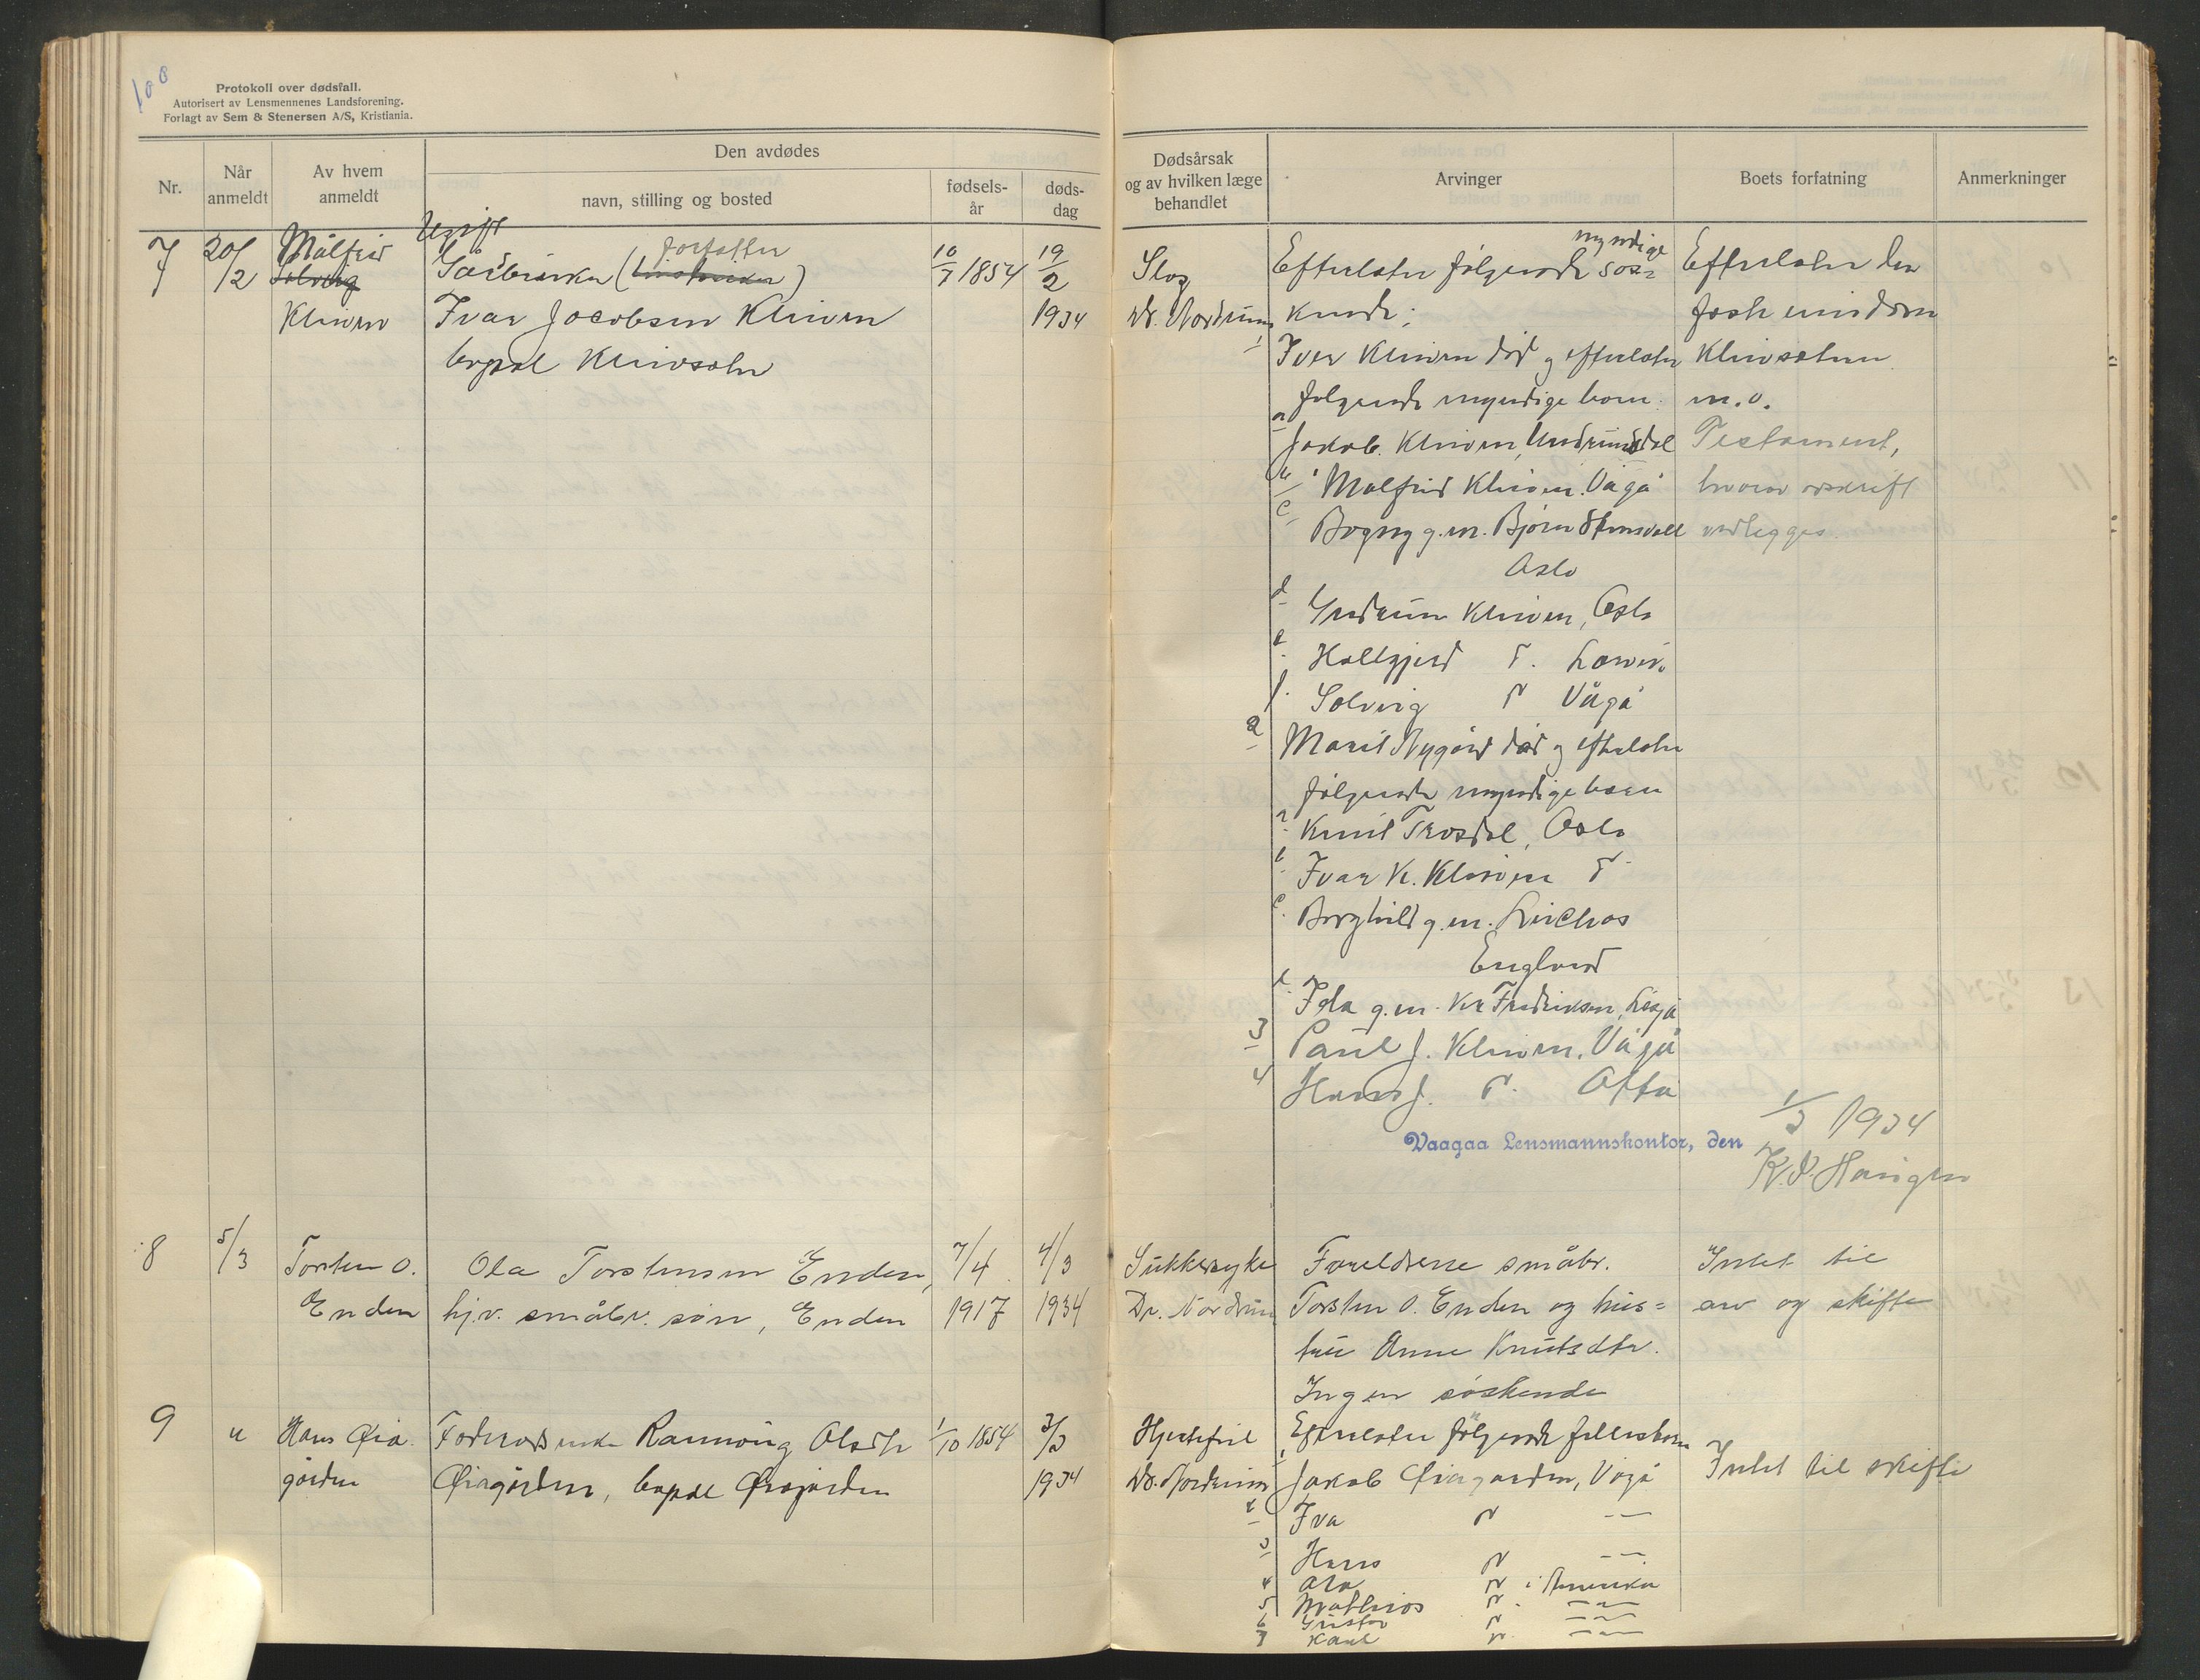 100
Protokoll over dødsfall.
Autorisert av Lensmennenes Landsforening.
Forlagt av Sem & Stenersen A/S, Kristiania.
Nr.
Når anmeldt
Av hvem anmeldt
Den avdødes
navn, stilling og bosted
fødsels-år
døds-dag
Dødsårsak og av hvilken læge behandlet
Arvinger
Boets forfatning
Anmerkninger
7
20/2
Målfrid
Solveig
Kleiven
Ugift
Gårdbruker (forfatter)
Ivar Jacobsen Kleiven
bopæl Kleivsæter
10/7 1854
19/2
1934
Slag
Dr. Nordrum
Efterlater følgende myndige søs=
kende:
1 Ivar Kleiven død og efterlater
følgende myndige barn:
a Jakob Kleiven, Gudbrandsdal
b Målfrid Kleiven. Vågå
c Bogny g.m. Bjørn Stensvall
Oslo
d Gudrun Kleiven, Oslo
e Hallgjerd " Larvik
f. Solveig " Vågå
2 Marit Nygård død og efterlater
følgende myndige barn
a Knut Trosdal, Oslo
b Ivar K. Kleiven "
c. Borghild g.m.
England
d Ida g.m. Kr Fredriksen, Lesja
3 Paul J. Kleiven, Vågå
4 Hans J. " Otta
Efterlater den
faste eiendom
Kleivsæteren
m.v.
Testament,
hvorav avskrift
vedlegges.
Vaagaa Lensmannskontor, den 1/3 1934
K. P. Haugen
8
5/3
Torsten O.
Enden
Ola Torstensen Enden,
hj.v. småbr. søn, Enden
7/4
1917
4/3
1934
Sukkersyke
Dr. Nordrum
Foreldrene småbr.
Torsten O. Enden og hus=
tru Anne Knutsdtr.
Ingen søskende
Intet til
arv og skifte
9
"
Hans Øia
gården
Føderådsenke Rannvig Olsdtr
Øiagården, bopæl Øiagården
1/10 1854
3/3
1934
Hjertefeil
Dr. Nordrum
Efterlater følgende fellesbarn
1 Jakob Øiagarden, Vågå
2 Iva " —"—
3 Hans " —"—
4 Ola " i Amerika
5 Mathias " —"—
6 Gustav " —"—
7 Karl " —"—
Intet til skifte